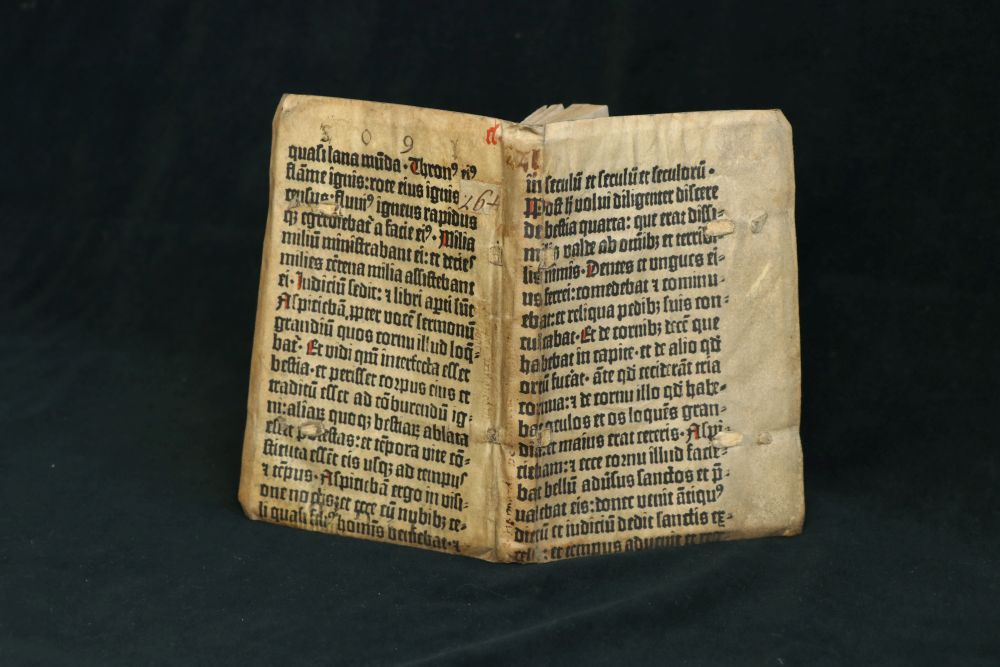 5 0 9 1
quasi lana mūda · Thronꝰ eiꝰ
flāme ignis: rote eius ignis
264
census · fluuiꝰ igneus rapidus
qꝫ egrediebat̄ a facie eiꝰ · Milia
miliū ministrabant ei: et decies
milies cētena milia assistebant
ei · Iudiciū sedit: ⁊ libri apti sūt
Aspiciebā ꝓpter vocē sermonū
grandiū quos cornu illud loq̄
bat̄ · Et vidi qm̄ interfecta esset
bestia · et perisset corpus eius et
traditū esset ad cōburendū ig-
ni: aliaꝝ quoqꝫ bestiaꝝ ablata
esset potestas: et tēpora vite cō-
stituta essēt eis usqꝫ ad tempus
⁊ tēpus · Aspiciebā ergo in visi-
one noctis: et ecce cū nubibꝫ ce-
li quasi filiꝰ homīs veniebat · ⁊
in seculū et seculū et seculorū ·
Post h̄ volui diligenter discere
de bestia quarta: que erat dissi-
milis valde ab omībꝫ et terribi-
lis nimis · Dentes et ungues ei-
us ferrei: comedebat ⁊ cōminu-
ebat: et reliqua pedibꝫ suis con-
culcabat · Et de cornibꝫ decē que
habebat in capite · et de alio qd̄
ortū fuerat · āte qd̄ ceciderāt tria
cornua: ⁊ de cornu illo qd̄ habe-
bat oculos et os loquēs gran-
dia: et maius erat ceteris · Aspi-
ciebam: ⁊ ecce cornu illud facie-
bat bellū adūsus sanctos et p̄-
ualebat eis: donec venit ātiquꝰ
dierū et iudiciū dedit sanctis ex-
celsi: et tempus aduenit et reg